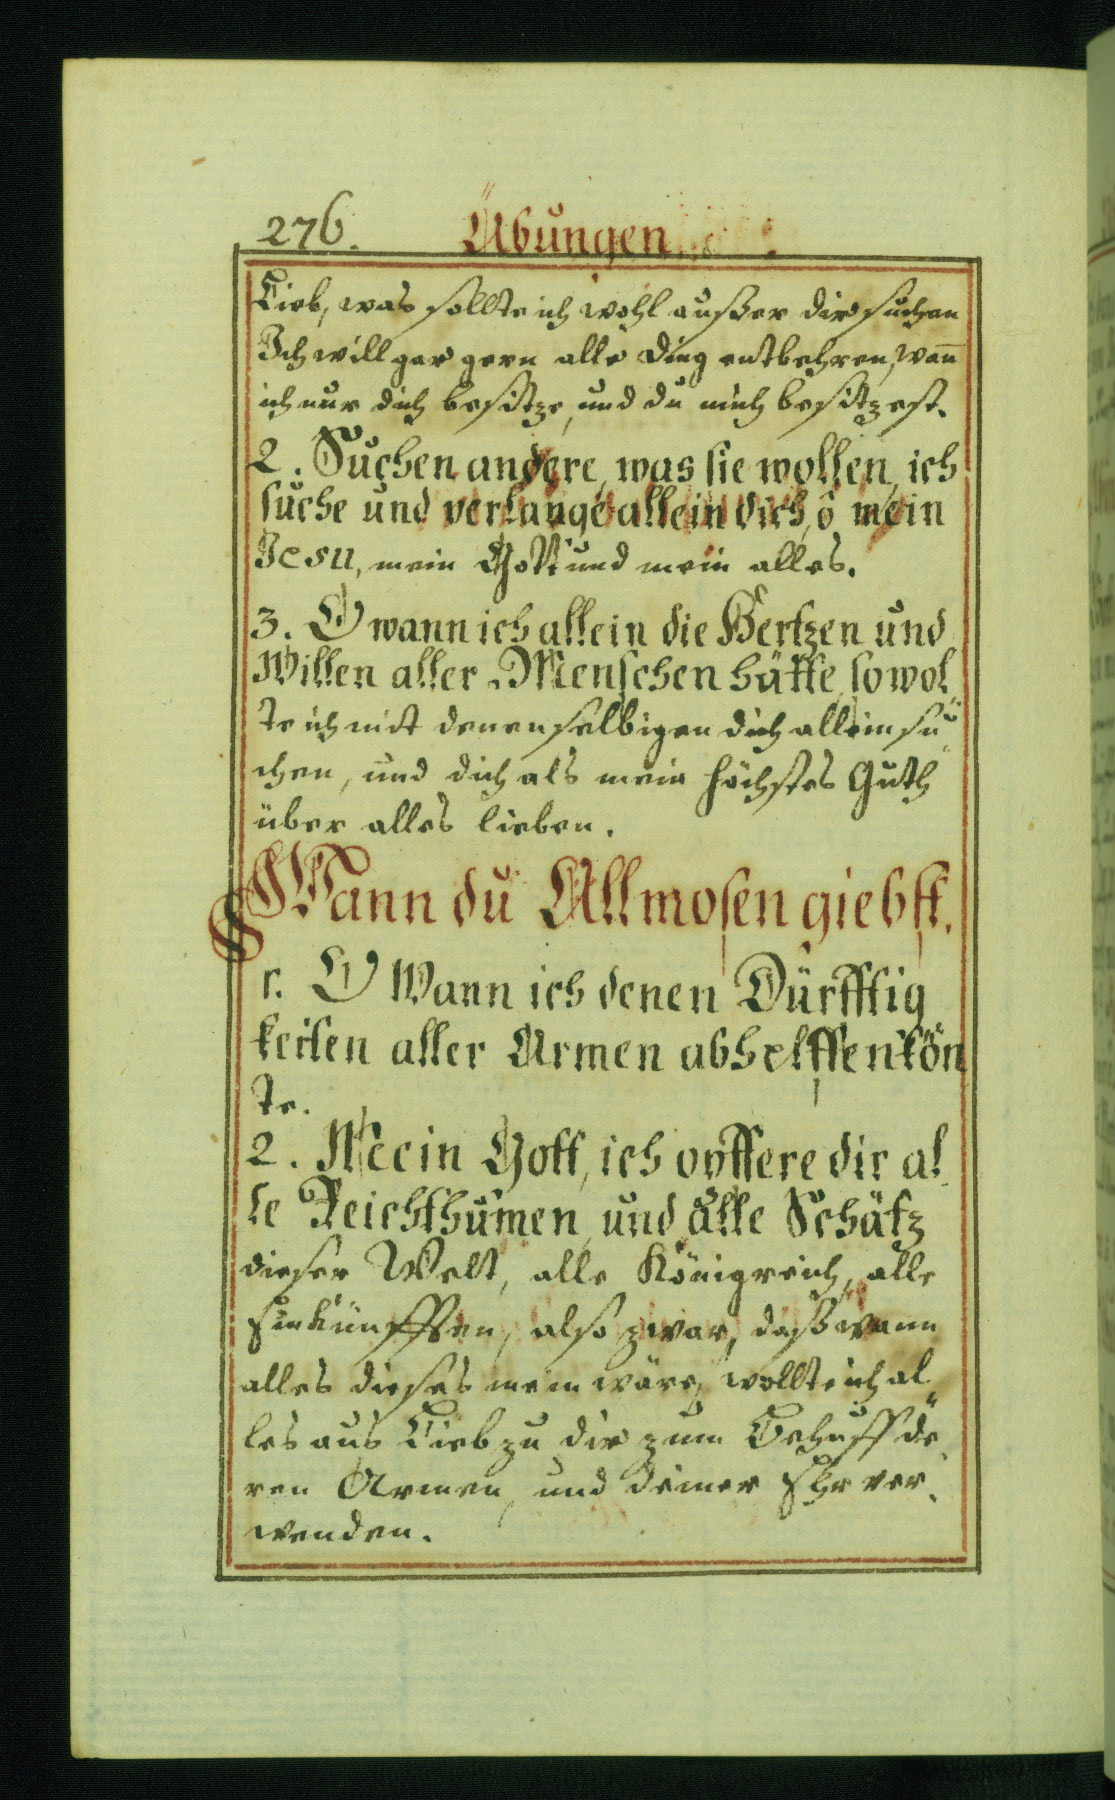 276. Übungen
Lieb, was sollte ich wohl außer dir suchen
Ich will gar gern alle ding entbehren, wañ
ich nur dich besitze, und du mich besitzest.
2. Suchen andere, was sie wollen, ich
suche und verlange allein dich, ô mein
Jesu, mein Gott und mein alles.
3. O wann ich allein die Hertzen und
Willen aller Menschen hätte, so wol
te ich mit denenselbigen dich allein su
chen, und dich als mein höchstes Guth
über alles lieben.
Wann du Allmosen giebst.
1. O Wann ich denen Dürfftig
keiten aller Armen abhelffen kön
te.
2. Mein Gott, ich opffere dir al
le Reichthumen, und alle Schätz
dieser Welt, alle Königreich, alle
Einkünfften, also zwar, daß wann
alles dieses mein wäre, wollte ich al
les aus Lieb zu dir zum Behuff de
ren Armen, und deiner Ehr ver
wenden.